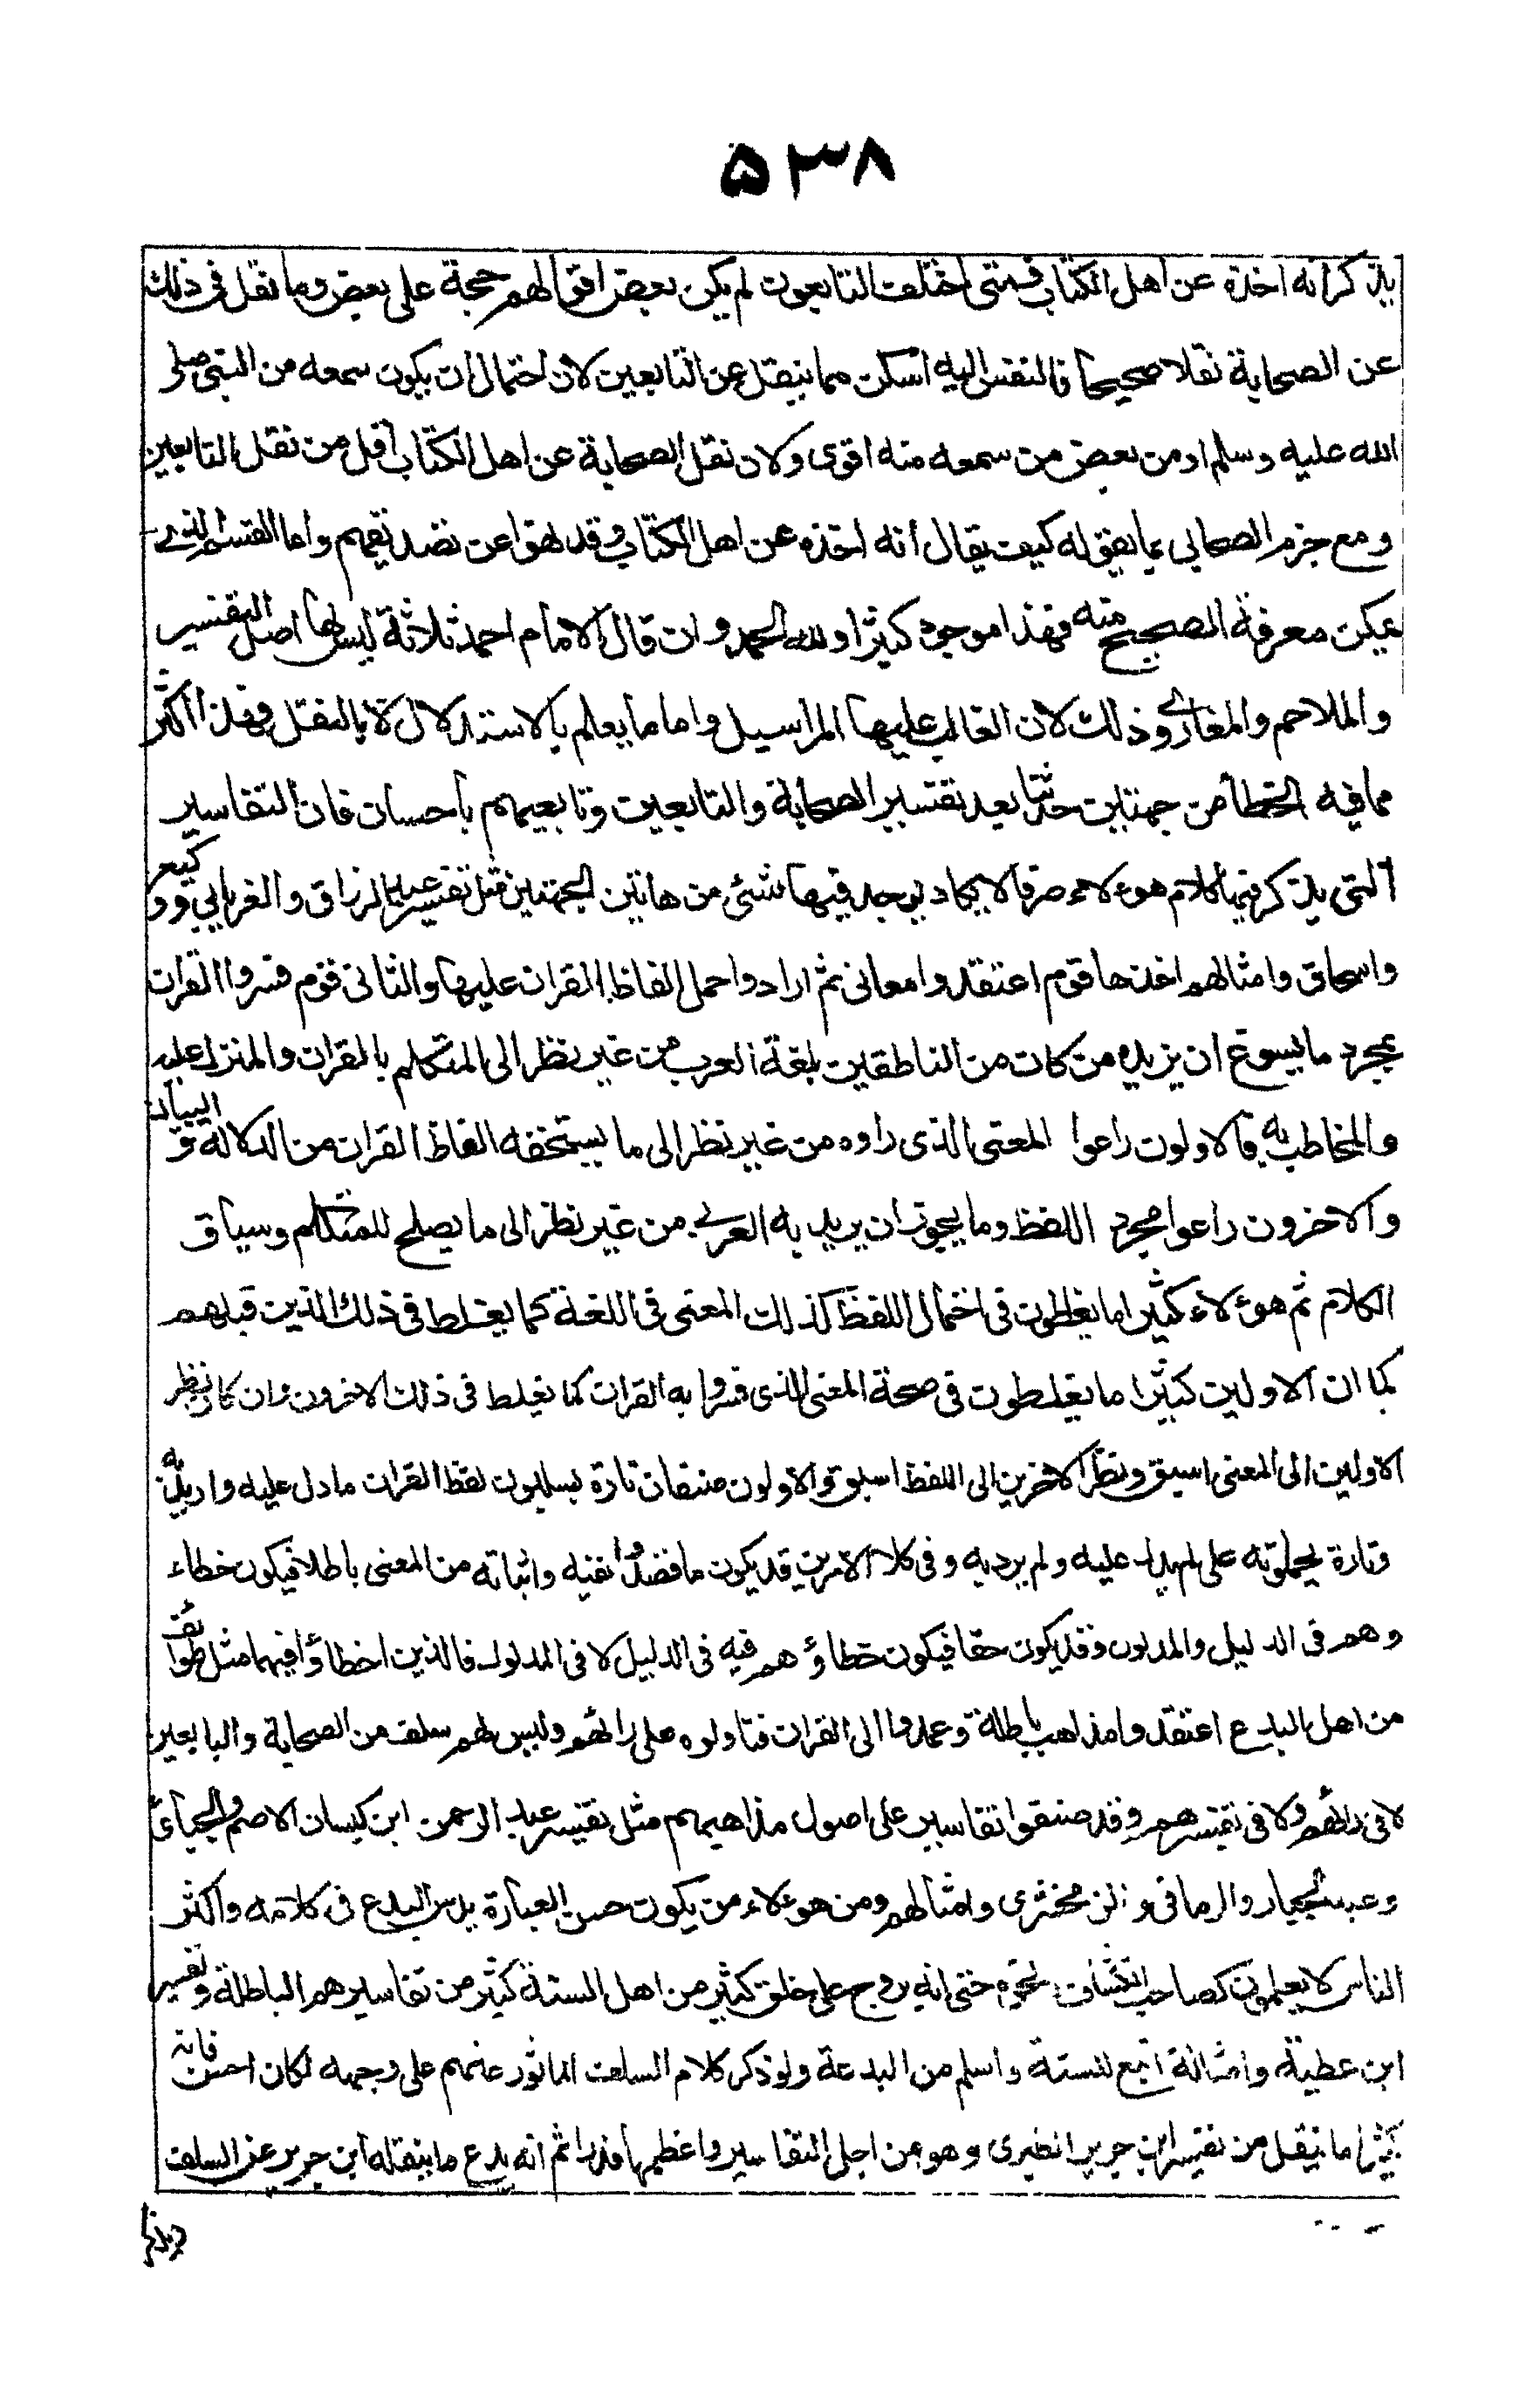 ۵۳۸
يذكر انه اخذه عن اهل الكتاب فمتى اختلف التابعون لم يكن بعض اقوالهم حجة على بعض وما نقل فى ذلك
عن الصحابة نقلا صحيحا فالنفس اليه اسكن مما ينقل عن التابعين لان احتمال ان يكون سمعه من النبى صلى
الله عليه وسلم او من بعض من سمعه منه اقوى ولان نقل الصحابة عن اهل الكتاب اقل من نقل التابعين
ومع جزم الصحابى بما يقوله كيف يقال انه اخذه عن اهل الكتاب وقد نهوا عن تصديقهم واما القسم الذى
يمكن معرفة الصحيح منه فهذا موجود كثيرا ولله الحمد وان قال الامام احمد ثلاثة ليس لها اصل التفسير
والملاحم والمغازى وذلك لان الغالب عليها المراسيل واما ما يعلم بالاستدلال لا بالنقل فهذا اكثر
مما فيه الخطأ من جهتين حدثتا بعد تفسير الصحابة والتابعين وتابعيهم باحسان فان التفاسير
التى يذكر فيها كلام هوءلاء صرفا لا يكاد يوجد فيها شئ من هاتين الجهتين مثل تفسير عبد الرزاق والفريابى ووكيع
واسحاق وامثالهم احدها قوم اعتقدوا معانى ثم ارادوا حمل الفاظ القران عليها والثانى قوم فسروا القران
بمجرد ما يسوغ ان يريده من كان من الناطقين بلغة العرب من غير نظر الى المتكلم بالقران والمنزل عليه
والمخاطب به فالاولون راعوا المعنى الذى راوه من غير نظر الى ما يستحقه الفاظ القران من الدلالة والبيان
والاخرون راعوا مجرد اللفظ وما يجوز ان يريد به العربى من غير نظر الى ما يصلح للمتكلم وسياق
الكلام ثم هوءلاء كثيرا ما يغلطون فى احتمال اللفظ كذلك المعنى فى اللغة كما يغلط فى ذلك الذين قبلهم
كما ان الاولين كثيرا ما يغلطون فى صحة المعنى الذى فسروا به القران كما يغلط فى ذلك الاخرون وان كان نظر
الاولين الى المعنى اسبق ونظر الاخرين الى اللفظ اسبق والاولون صنفان تارة يسلبون لفظ القران ما دل عليه واريد به
وتارة يحملونه على لم يدل عليه ولم يرد به وفى كلا الامرين قد يكون ما قصدوا نفيه واثباته من المعنى باطلا فيكون خطاء
وهم فى الدليل والمدلول وقد يكون حقا فيكون خطاؤهم فيه فى الدليل لا فى المدلول فالذين اخطاؤا فيهما مثل طوائف
من اهل البدع اعتقدوا مذاهب باطلة وعمدوا الى القران فتاولوه على رائهم وليس لهم سلف من الصحابة والتابعين
لا فى رائهم ولا فى تفسيرهم وقد صنفوا تفاسير على اصول مذاهبهم مثل تفسير عبد الرحمن ابن كيسان الاصم والجبائى
وعبد الجبار والرمانى والزمخشرى وامثالهم ومن هوءلاء من يكون حسن العبارة يدس البدع فى كلامه واكثر
الناس لا يعلمون كصاحب الكشاف ونحوه حتى انه يروج على خلق كثير من اهل السنة كثير من تفاسيرهم الباطلة وتفسير
ابن عطية وامثاله اتبع للسنة واسلم من البدعة ولو ذكر كلام السلف الماثور عنهم على وجهه لكان احسن فانه
كثيرا ما ينقل من تفسير ابن جرير الطبرى وهو من اجل التفاسير واعظمها قدرا ثم انه يدع ما ينقله ابن جرير عن السلف